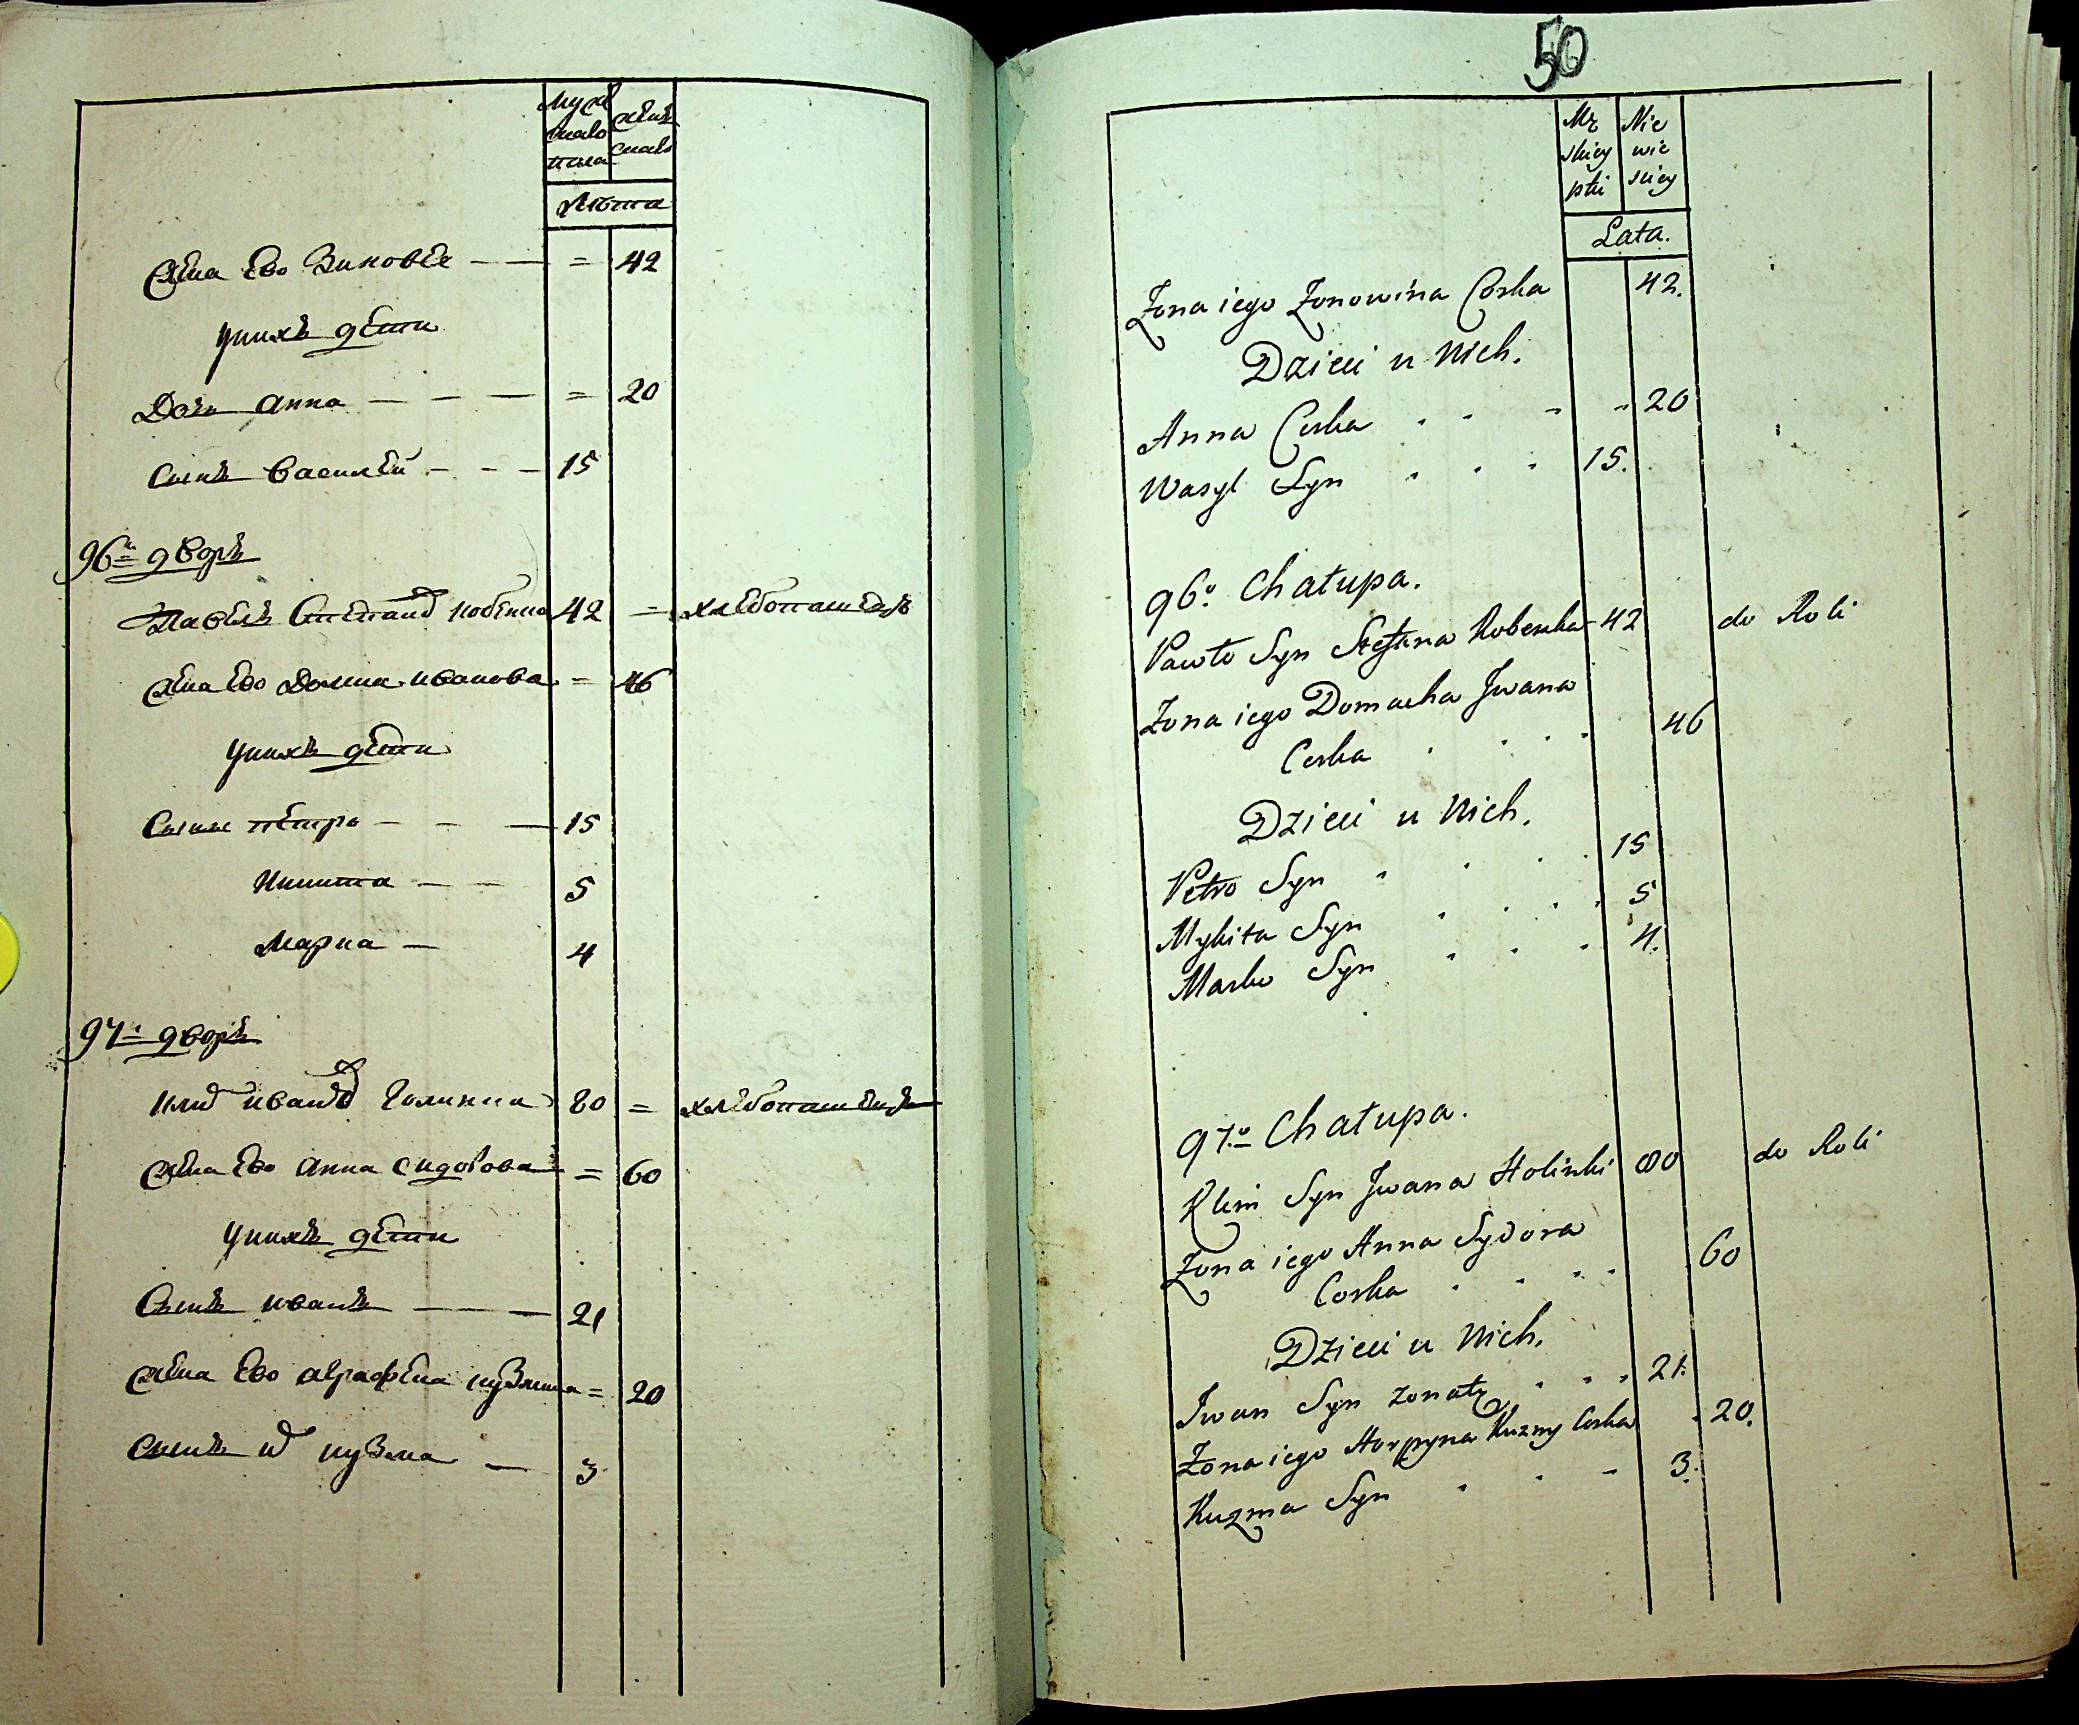 Муж
скаго
пола
Жен
скаго
Лѣта
Жена Ево Зиновѣя — — = 42
У нихъ дѣти
Дочь Анна — — — = 20
Сынъ Василѣй — — — 15
96й дворъ
Павелъ Степанов Кобенка 42 = хлебопашецъ
Жена Ево Домна Иванова = 46
У нихъ дети
Сыны Петро — — — 15
Никита — — 5
Марко — 4
97й дворъ
Клим Иванов Голинки 80 = хлебопашецъ
Жена Ево Анна Сидорова = 60
У нихъ дети
Сынъ Иванъ — — 21
Жена Ево Аграфена Кузмина = 20
Сынъ Кузма — 3
50
Mę
skiey
płci
Nie
wie
skiey
Lata.
Zona iego Zonowina Corka 42.
Dzieci u Nich.
Anna Corka 20
Wasyl Syn 15.
96o Chałupa.
Pawło Syn Stefana Kobenka 42 do Roli
Zona iego Domacha Jwana
Corka 46
Dzieci u Nich.
Petro Syn 15
Mykita Syn 5
Marko Syn 4.
97o Chałupa.
Klim Syn Jwana Holinki 80 do Roli
Zona iego Anna Sydora
Corka 60
Dzieci u Nich.
Jwan Syn zonaty 21.
Zona iego Horpyna Kuzmy Corka 20.
Kuzma Syn 3.